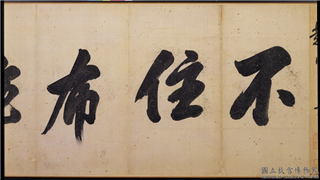 不
住
布
國立故宮博物院